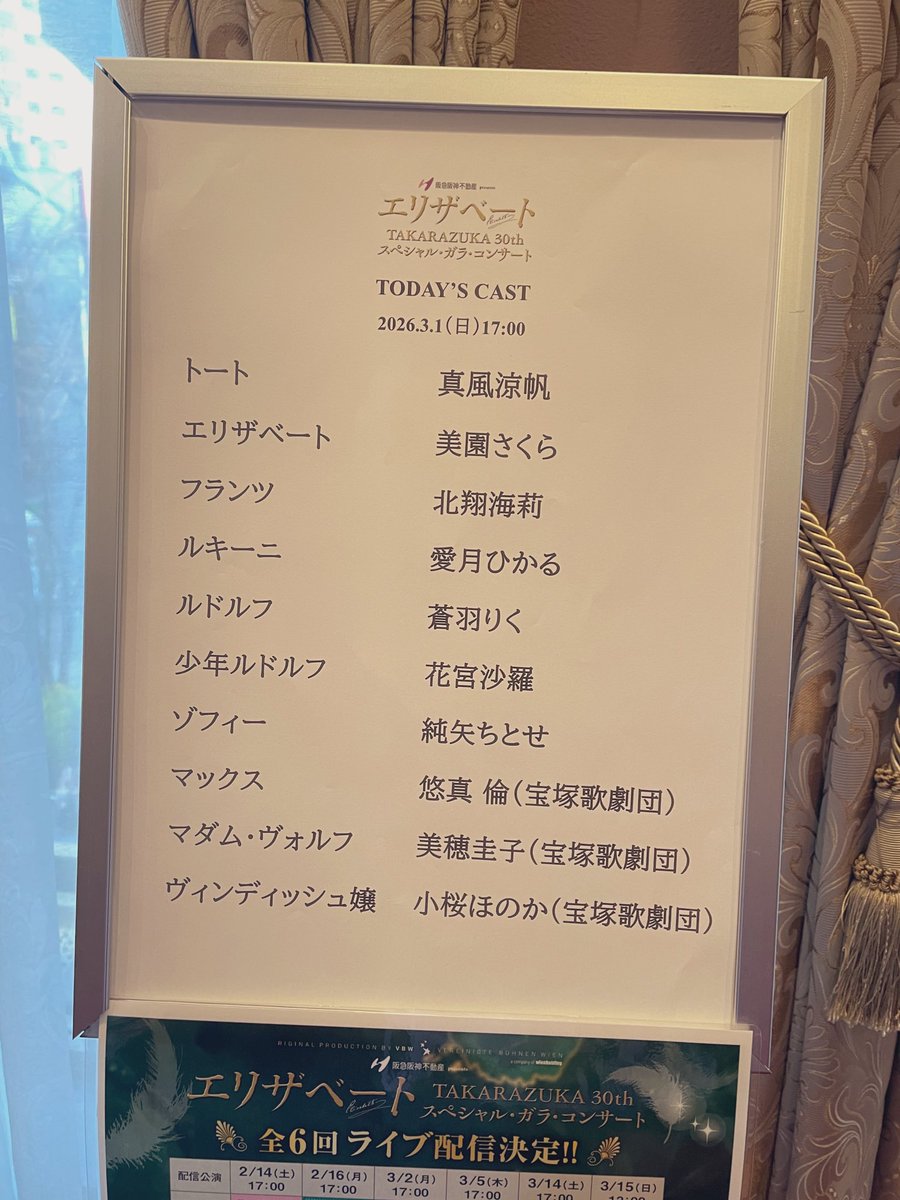 阪急阪神不動産 presents
エリザベート
TAKARAZUKA 30th
スペシャル・ガラ・コンサート
TODAY'S CAST
2026.3.1(日)17:00
トート 真風涼帆
エリザベート 美園さくら
フランツ 北翔海莉
ルキーニ 愛月ひかる
ルドルフ 蒼羽りく
少年ルドルフ 花宮沙羅
ゾフィー 純矢ちとせ
マックス 悠真 倫(宝塚歌劇団)
マダム・ヴォルフ 美穂圭子(宝塚歌劇団)
ヴィンディッシュ嬢 小桜ほのか(宝塚歌劇団)
RIGINAL PRODUCTION BY VBW VEREINIGTE BÜHNEN WIEN
a company of wienholding
阪急阪神不動産 presents
エリザベート TAKARAZUKA 30th
スペシャル・ガラ・コンサート
全6回 ライブ配信決定!!
配信公演 2/14(土) 2/16(月) 3/2(月) 3/5(木) 3/14(土) 3/15(日)
17:00 17:00 17:00 17:00 17:00